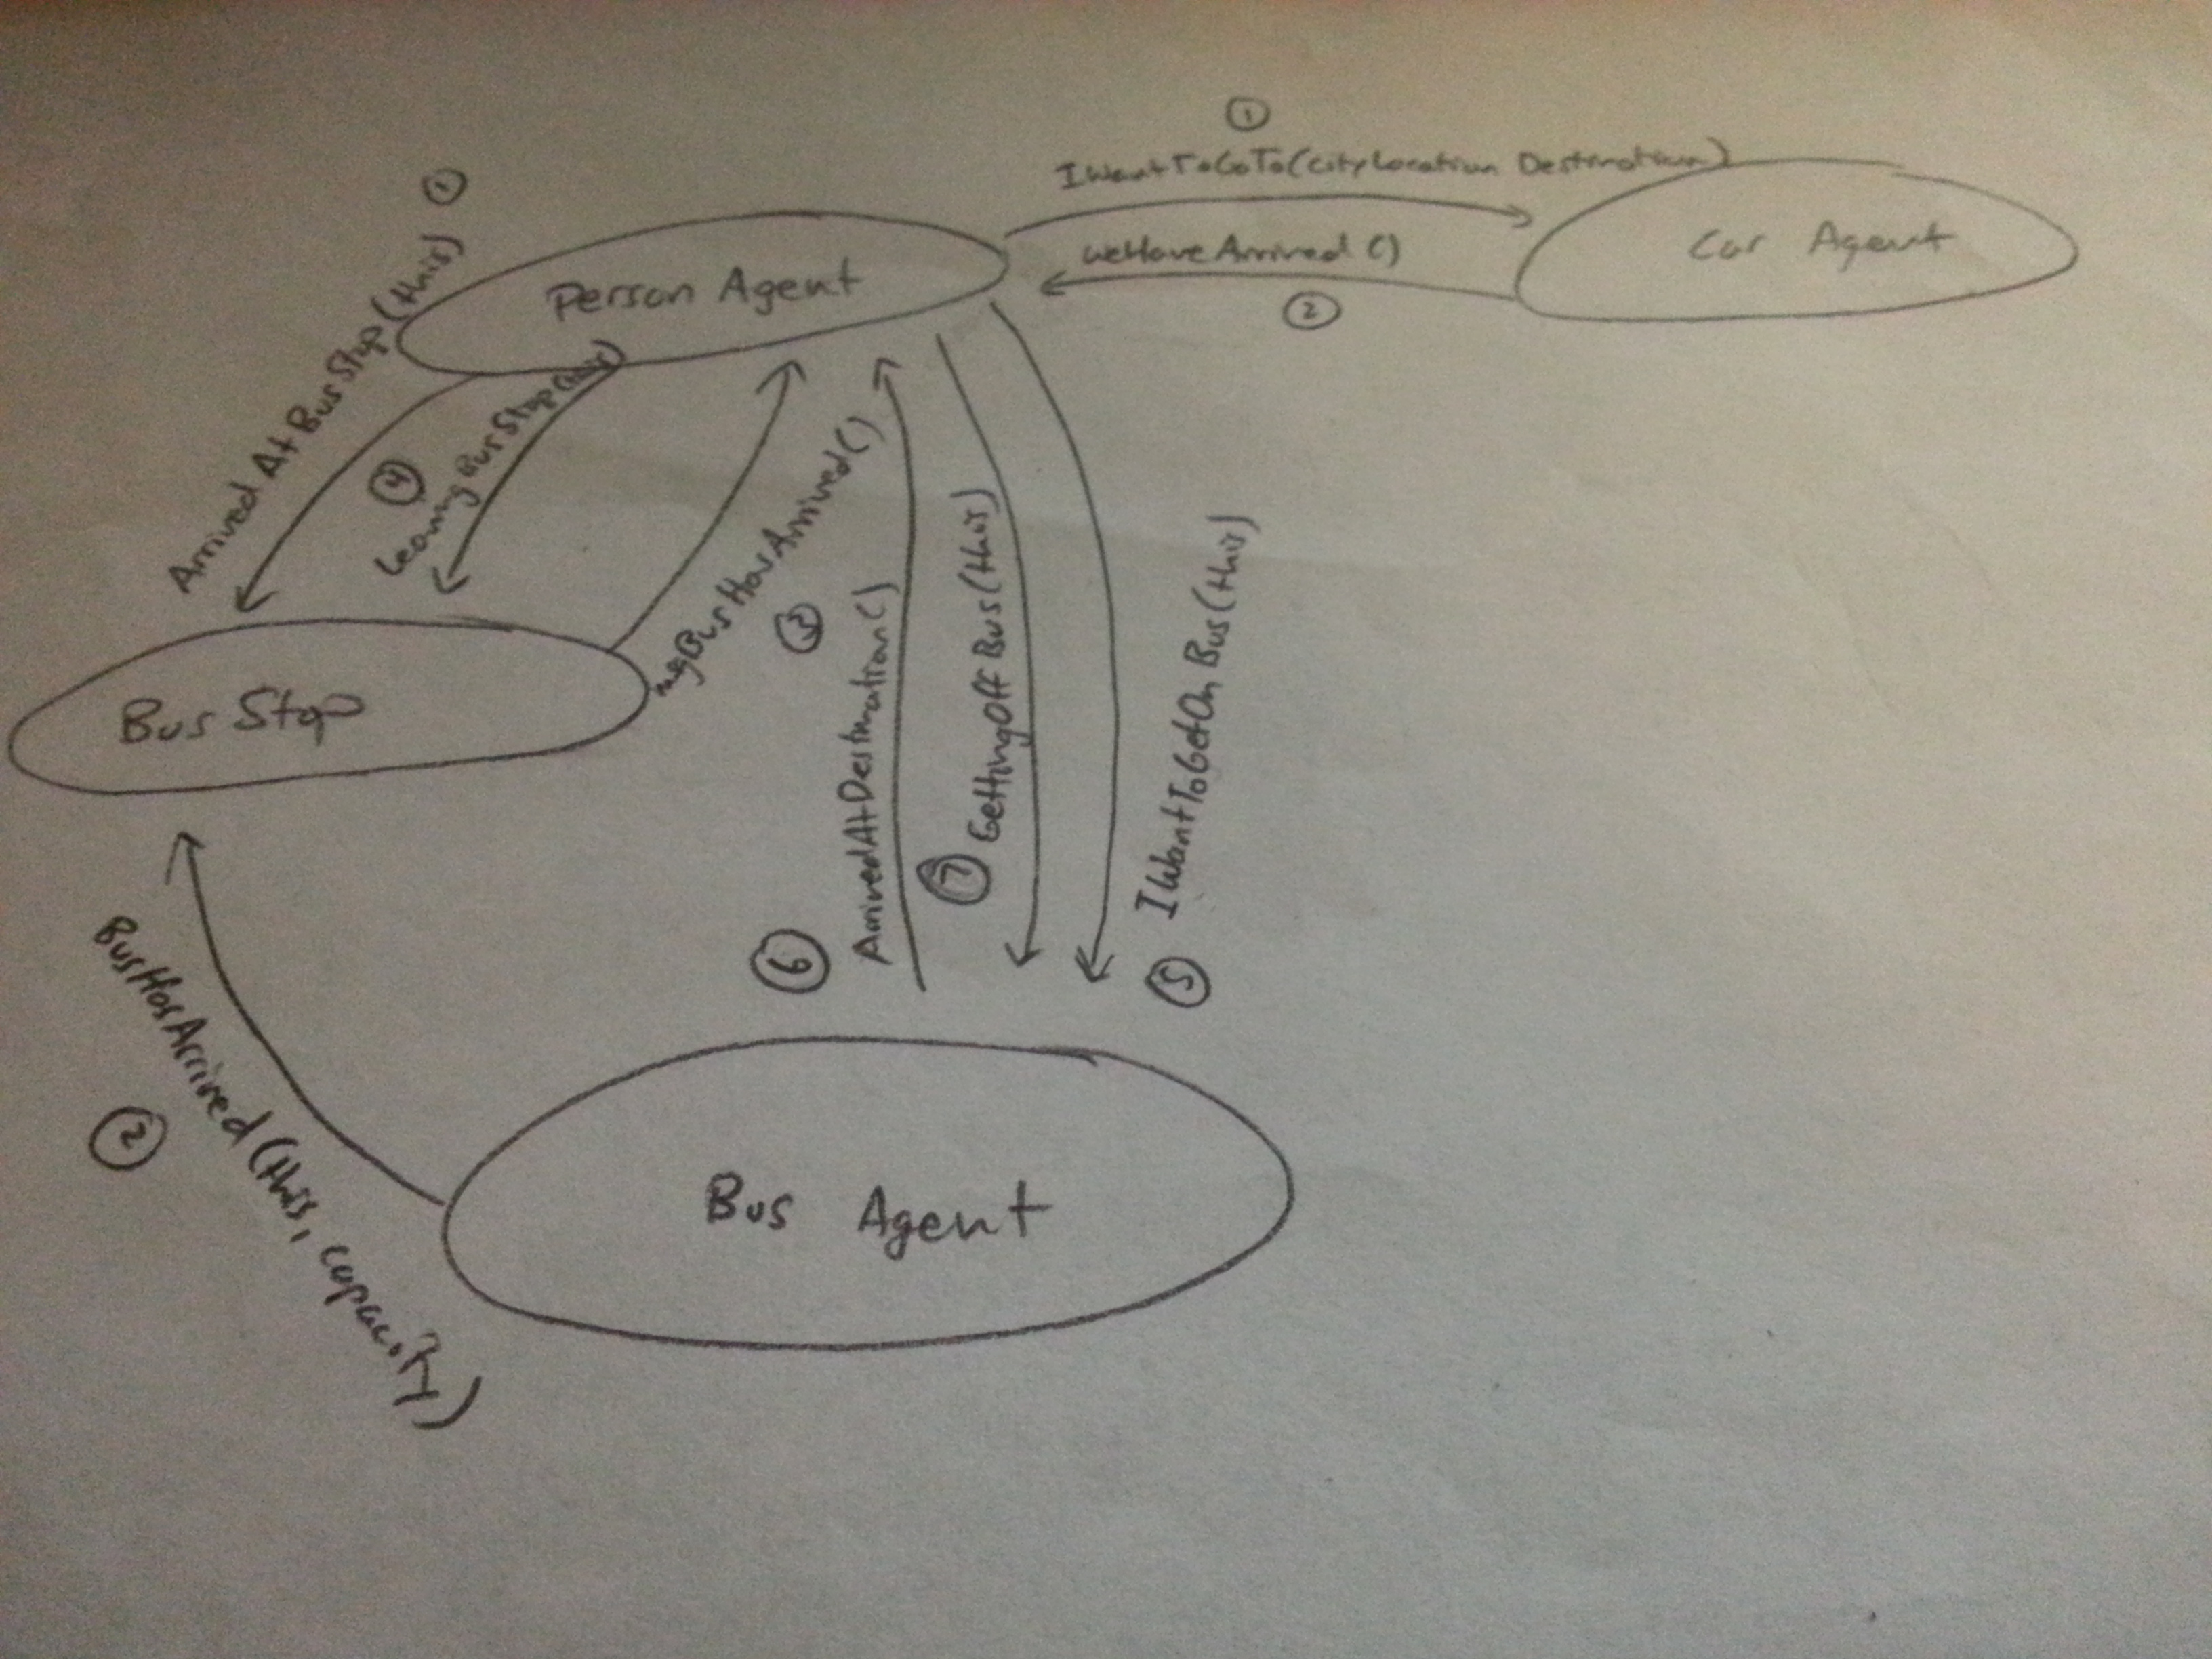 ①
IWantToGoTo(cityLocation Destination)
Car Agent
weHaveArrived()
②
Person Agent
①
Arrived At Bus Stop (this)
④
leavingBusStop(this)
msgBusHasArrived()
③
ArrivedAtDestination()
⑥
GettingOff Bus(this)
⑦
IWantToGetOn Bus(this)
⑤
Bus Stop
BusHasArrived(this, capacity)
②
Bus Agent